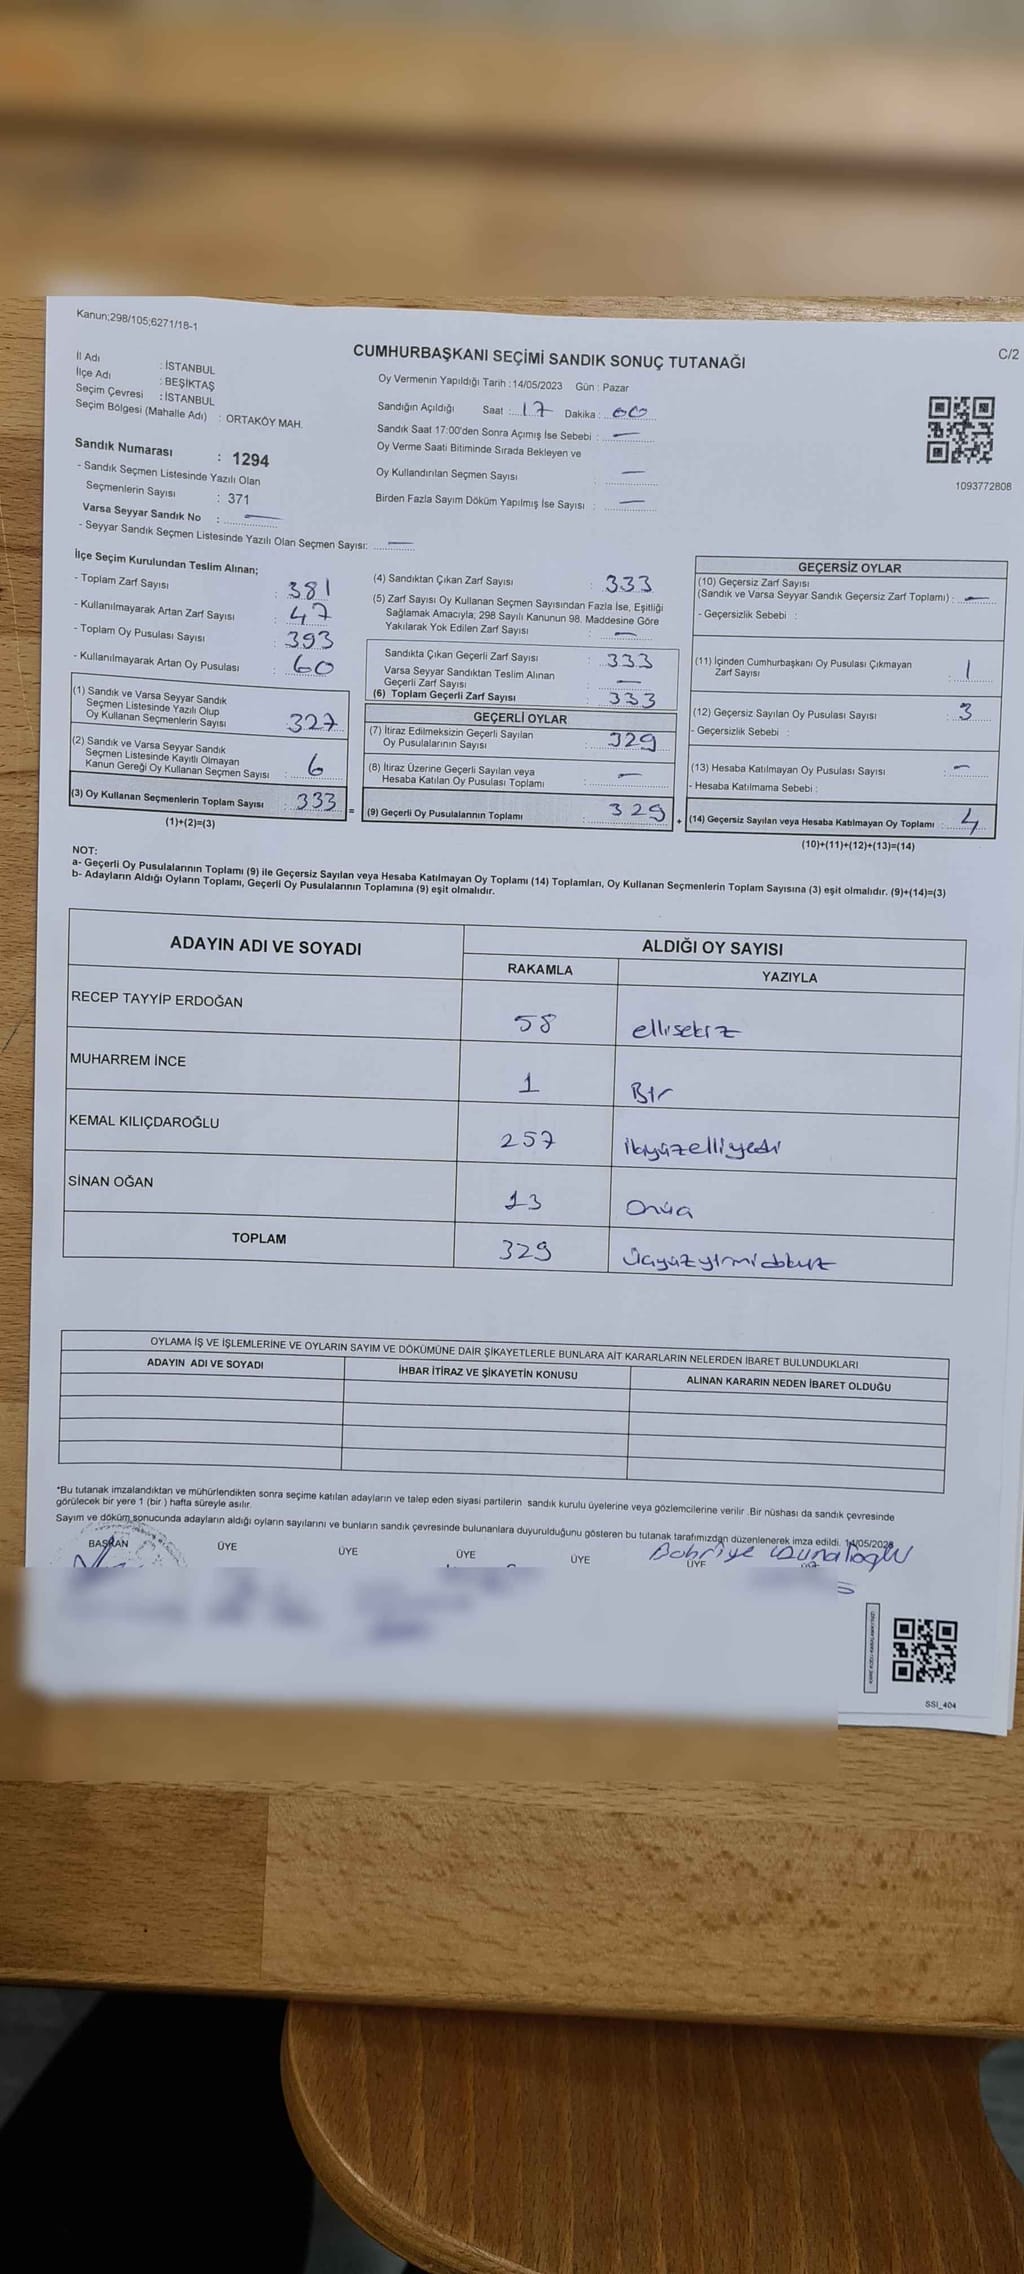 Kanun;298/105;6271/18-1
C/2
CUMHURBAŞKANI SEÇİMİ SANDIK SONUÇ TUTANAĞI
İl Adı : İSTANBUL
İlçe Adı : BEŞİKTAŞ
Seçim Çevresi : İSTANBUL
Seçim Bölgesi (Mahalle Adı) : ORTAKÖY MAH.
Sandık Numarası : 1294
- Sandık Seçmen Listesinde Yazılı Olan
Seçmenlerin Sayısı : 371
Varsa Seyyar Sandık No : —
- Seyyar Sandık Seçmen Listesinde Yazılı Olan Seçmen Sayısı: —
Oy Vermenin Yapıldığı Tarih : 14/05/2023 Gün : Pazar
Sandığın Açıldığı Saat : 17 Dakika : 00
Sandık Saat 17:00'den Sonra Açımış İse Sebebi : —
Oy Verme Saati Bitiminde Sırada Bekleyen ve
Oy Kullandırılan Seçmen Sayısı : —
Birden Fazla Sayım Döküm Yapılmış İse Sayısı : —
1093772808
İlçe Seçim Kurulundan Teslim Alınan;
- Toplam Zarf Sayısı : 381
- Kullanılmayarak Artan Zarf Sayısı : 47
- Toplam Oy Pusulası Sayısı : 393
- Kullanılmayarak Artan Oy Pusulası : 60
(1) Sandık ve Varsa Seyyar Sandık
Seçmen Listesinde Yazılı Olup
Oy Kullanan Seçmenlerin Sayısı : 327
(2) Sandık ve Varsa Seyyar Sandık
Seçmen Listesinde Kayıtlı Olmayan
Kanun Gereği Oy Kullanan Seçmen Sayısı : 6
(3) Oy Kullanan Seçmenlerin Toplam Sayısı : 333 =
(1)+(2)=(3)
(4) Sandıktan Çıkan Zarf Sayısı : 333
(5) Zarf Sayısı Oy Kullanan Seçmen Sayısından Fazla İse, Eşitliği
Sağlamak Amacıyla, 298 Sayılı Kanunun 98. Maddesine Göre
Yakılarak Yok Edilen Zarf Sayısı : —
Sandıkta Çıkan Geçerli Zarf Sayısı : 333
Varsa Seyyar Sandıktan Teslim Alınan
Geçerli Zarf Sayısı : —
(6) Toplam Geçerli Zarf Sayısı : 333
GEÇERLİ OYLAR
(7) İtiraz Edilmeksizin Geçerli Sayılan
Oy Pusulalarının Sayısı : 329
(8) İtiraz Üzerine Geçerli Sayılan veya
Hesaba Katılan Oy Pusulası Toplamı : —
(9) Geçerli Oy Pusulalarının Toplamı : 329 +
GEÇERSİZ OYLAR
(10) Geçersiz Zarf Sayısı
(Sandık ve Varsa Seyyar Sandık Geçersiz Zarf Toplamı) : —
- Geçersizlik Sebebi :
(11) İçinden Cumhurbaşkanı Oy Pusulası Çıkmayan
Zarf Sayısı : 1
(12) Geçersiz Sayılan Oy Pusulası Sayısı : 3
- Geçersizlik Sebebi :
(13) Hesaba Katılmayan Oy Pusulası Sayısı : —
- Hesaba Katılmama Sebebi :
(14) Geçersiz Sayılan veya Hesaba Katılmayan Oy Toplamı : 4
(10)+(11)+(12)+(13)=(14)
NOT:
a- Geçerli Oy Pusulalarının Toplamı (9) ile Geçersiz Sayılan veya Hesaba Katılmayan Oy Toplamı (14) Toplamları, Oy Kullanan Seçmenlerin Toplam Sayısına (3) eşit olmalıdır. (9)+(14)=(3)
b- Adayların Aldığı Oyların Toplamı, Geçerli Oy Pusulalarının Toplamına (9) eşit olmalıdır.
ADAYIN ADI VE SOYADI ALDIĞI OY SAYISI
RAKAMLA YAZIYLA
RECEP TAYYİP ERDOĞAN 58 ellisekiz
MUHARREM İNCE 1 Bir
KEMAL KILIÇDAROĞLU 257 ikiyüzelliyedi
SİNAN OĞAN 13 Onüç
TOPLAM 329 Üçyüzyirmidokuz
OYLAMA İŞ VE İŞLEMLERİNE VE OYLARIN SAYIM VE DÖKÜMÜNE DAİR ŞİKAYETLERLE BUNLARA AİT KARARLARIN NELERDEN İBARET BULUNDUKLARI
ADAYIN ADI VE SOYADI İHBAR İTİRAZ VE ŞİKAYETİN KONUSU ALINAN KARARIN NEDEN İBARET OLDUĞU
*Bu tutanak imzalandıktan ve mühürlendikten sonra seçime katılan adayların ve talep eden siyasi partilerin sandık kurulu üyelerine veya gözlemcilerine verilir .Bir nüshası da sandık çevresinde
görülecek bir yere 1 (bir ) hafta süreyle asılır.
Sayım ve döküm sonucunda adayların aldığı oyların sayılarını ve bunların sandık çevresinde bulunanlara duyurulduğunu gösteren bu tutanak tarafımızdan düzenlenerek imza edildi. 14/05/2023
BAŞKAN ÜYE ÜYE ÜYE ÜYE ÜYE
SSI_404